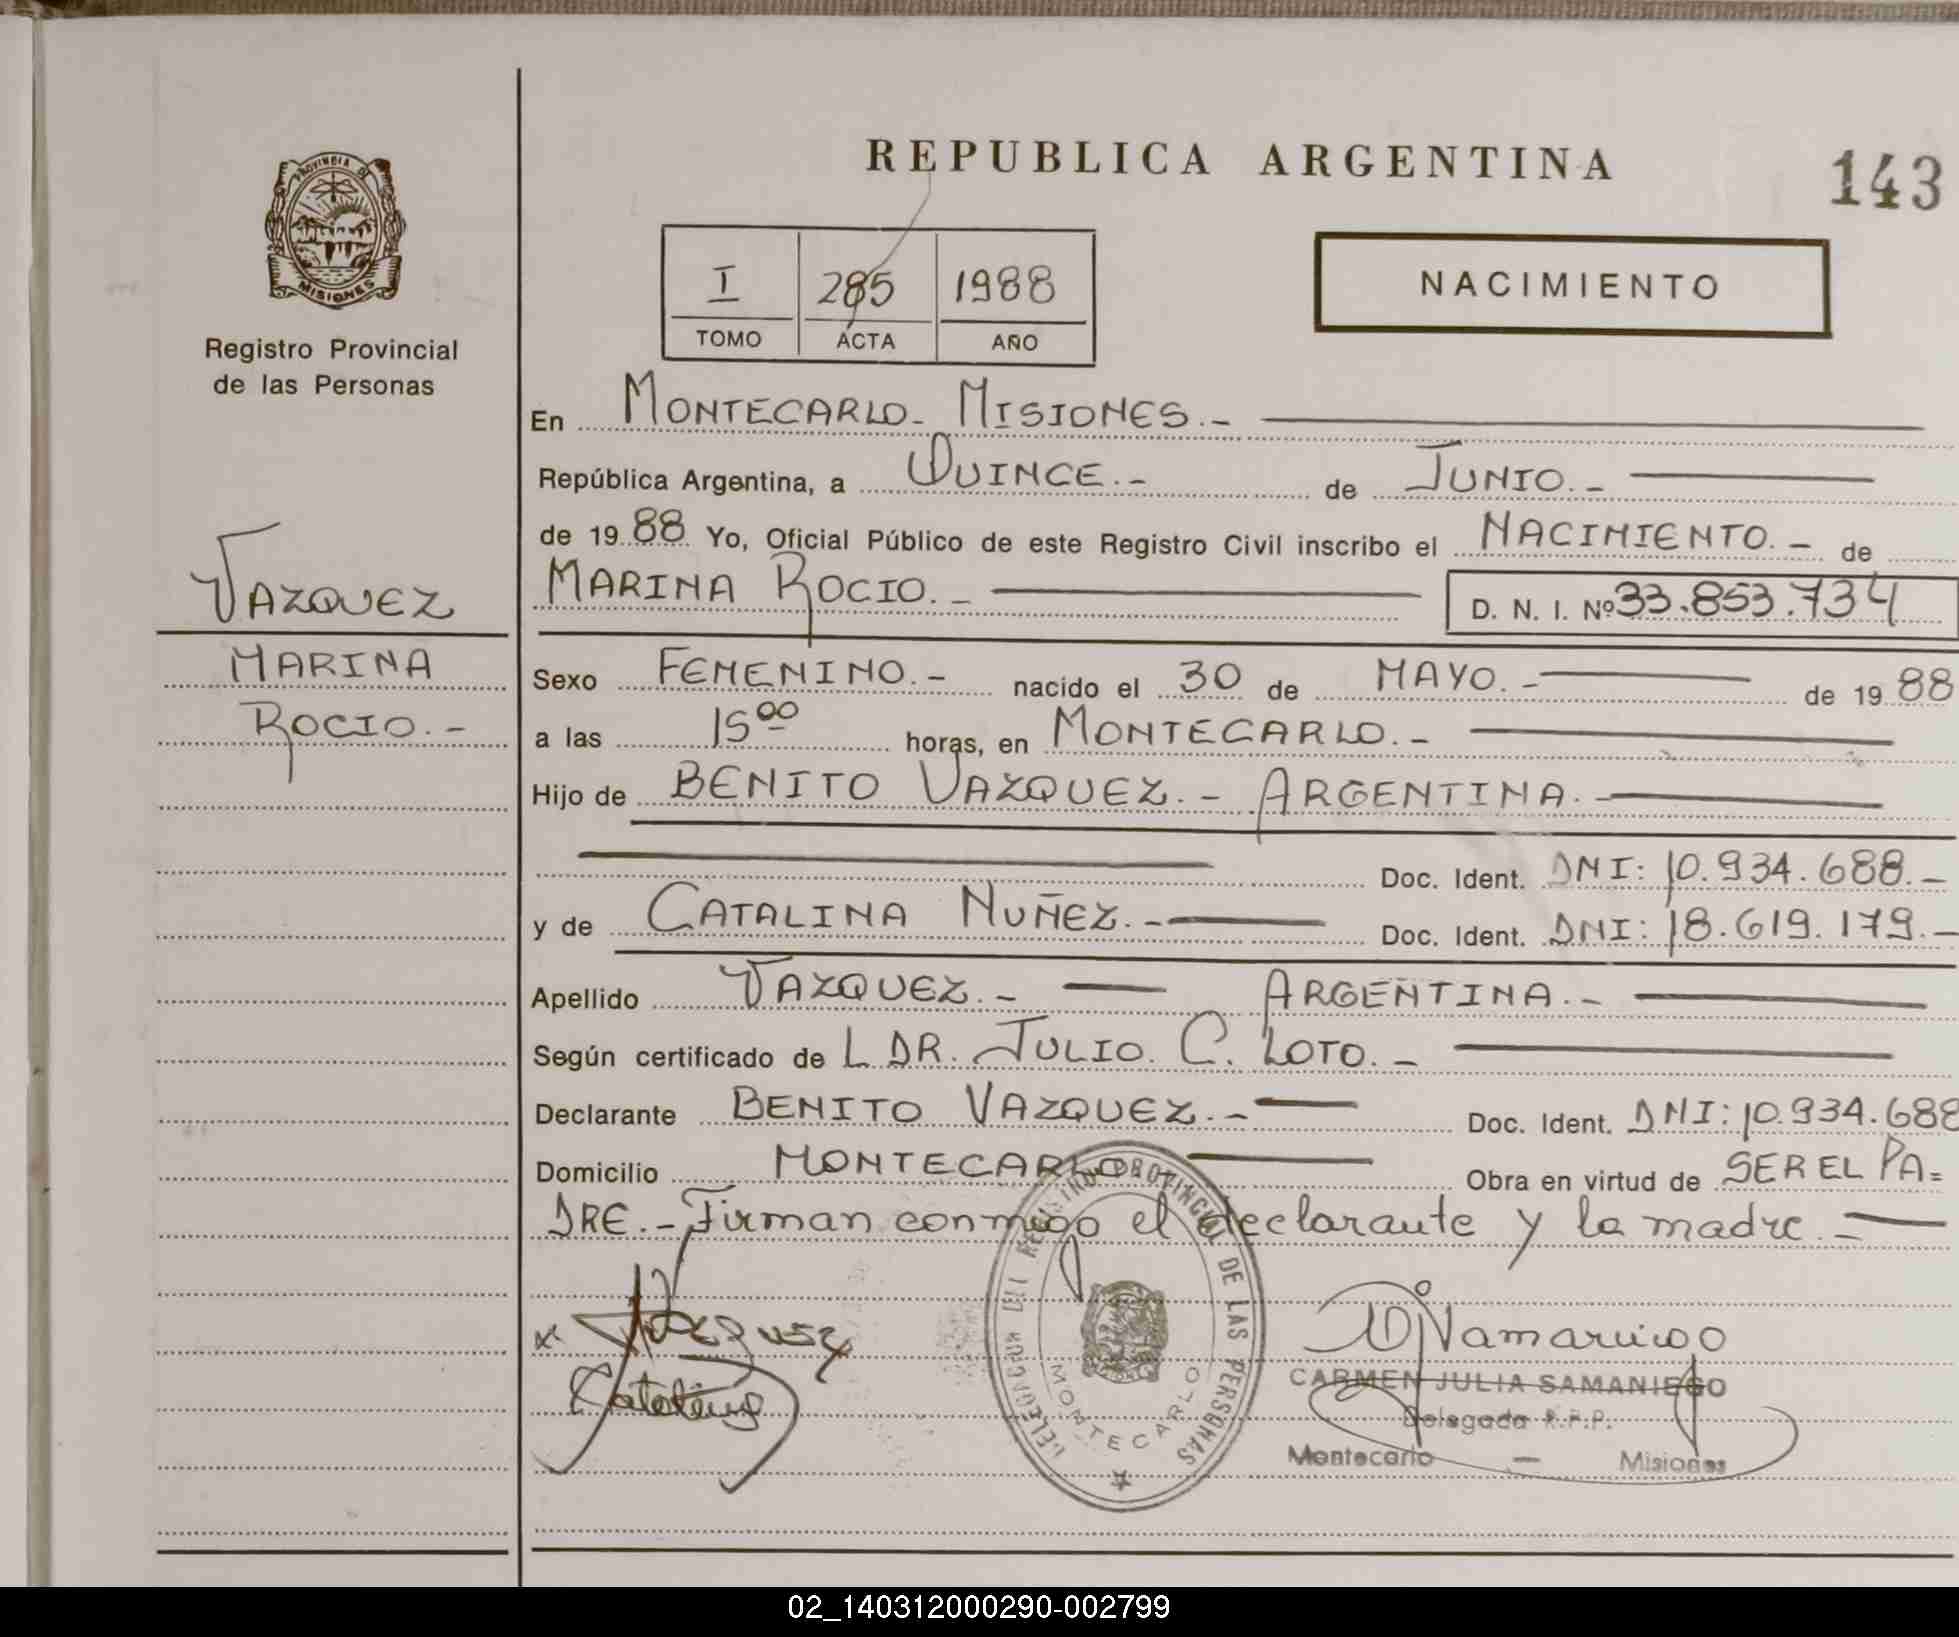 REPUBLICA ARGENTINA
143
PROVINCIA DE
MISIONES
Registro Provincial
de las Personas
I 285 1988
TOMO ACTA AÑO
NACIMIENTO
En MONTECARLO - MISIONES.-
República Argentina, a QUINCE.- de JUNIO.-
de 19 88 Yo, Oficial Público de este Registro Civil inscribo el NACIMIENTO.- de
MARINA ROCIO.- D. N. I. Nº 33.853.734
VAZQUEZ
MARINA
ROCIO.-
Sexo FEMENINO.- nacido el 30 de MAYO.- de 19 88
a las 15 00 horas, en MONTECARLO.-
Hijo de BENITO VAZQUEZ.- ARGENTINA.-
Doc. Ident. DNI: 10.934.688.-
y de CATALINA NUÑEZ.- Doc. Ident. DNI: 18.619.179.-
Apellido VAZQUEZ.- ARGENTINA.-
Según certificado de L DR. JULIO. C. LOTO.-
Declarante BENITO VAZQUEZ.- Doc. Ident. DNI: 10.934.688
Domicilio MONTECARLO Obra en virtud de SER EL PA=
DRE.- Firman conmigo el declarante y la madre.-
Vazquez
Catalina
REGISTRO PROVINCIAL DE LAS PERSONAS
MONTECARLO
CARMEN JULIA SAMANIEGO
Delegada R.P.P.
Montecarlo - Misiones
02_140312000290-002799